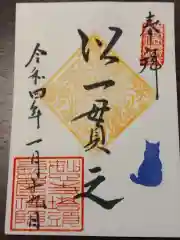 奉拝
以一貫之
令和四年一月十九日